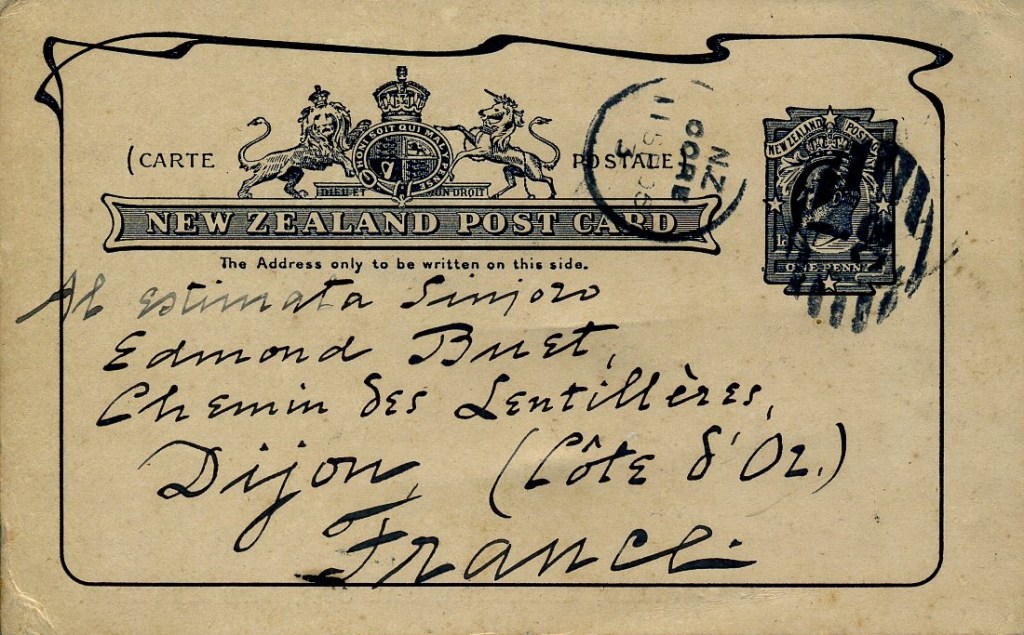 (CARTE POSTALE)
HONI SOIT QUI MAL Y PENSE
DIEU ET MON DROIT
NEW ZEALAND POST CARD
The Address only to be written on this side.
NEW ZEALAND POSTAGE
ONE PENNY
GORE
NZ
Al estimata Sinjoro
Edmond Buet,
Chemin des Lentillères,
Dijon, (Côte d'Or.)
France.